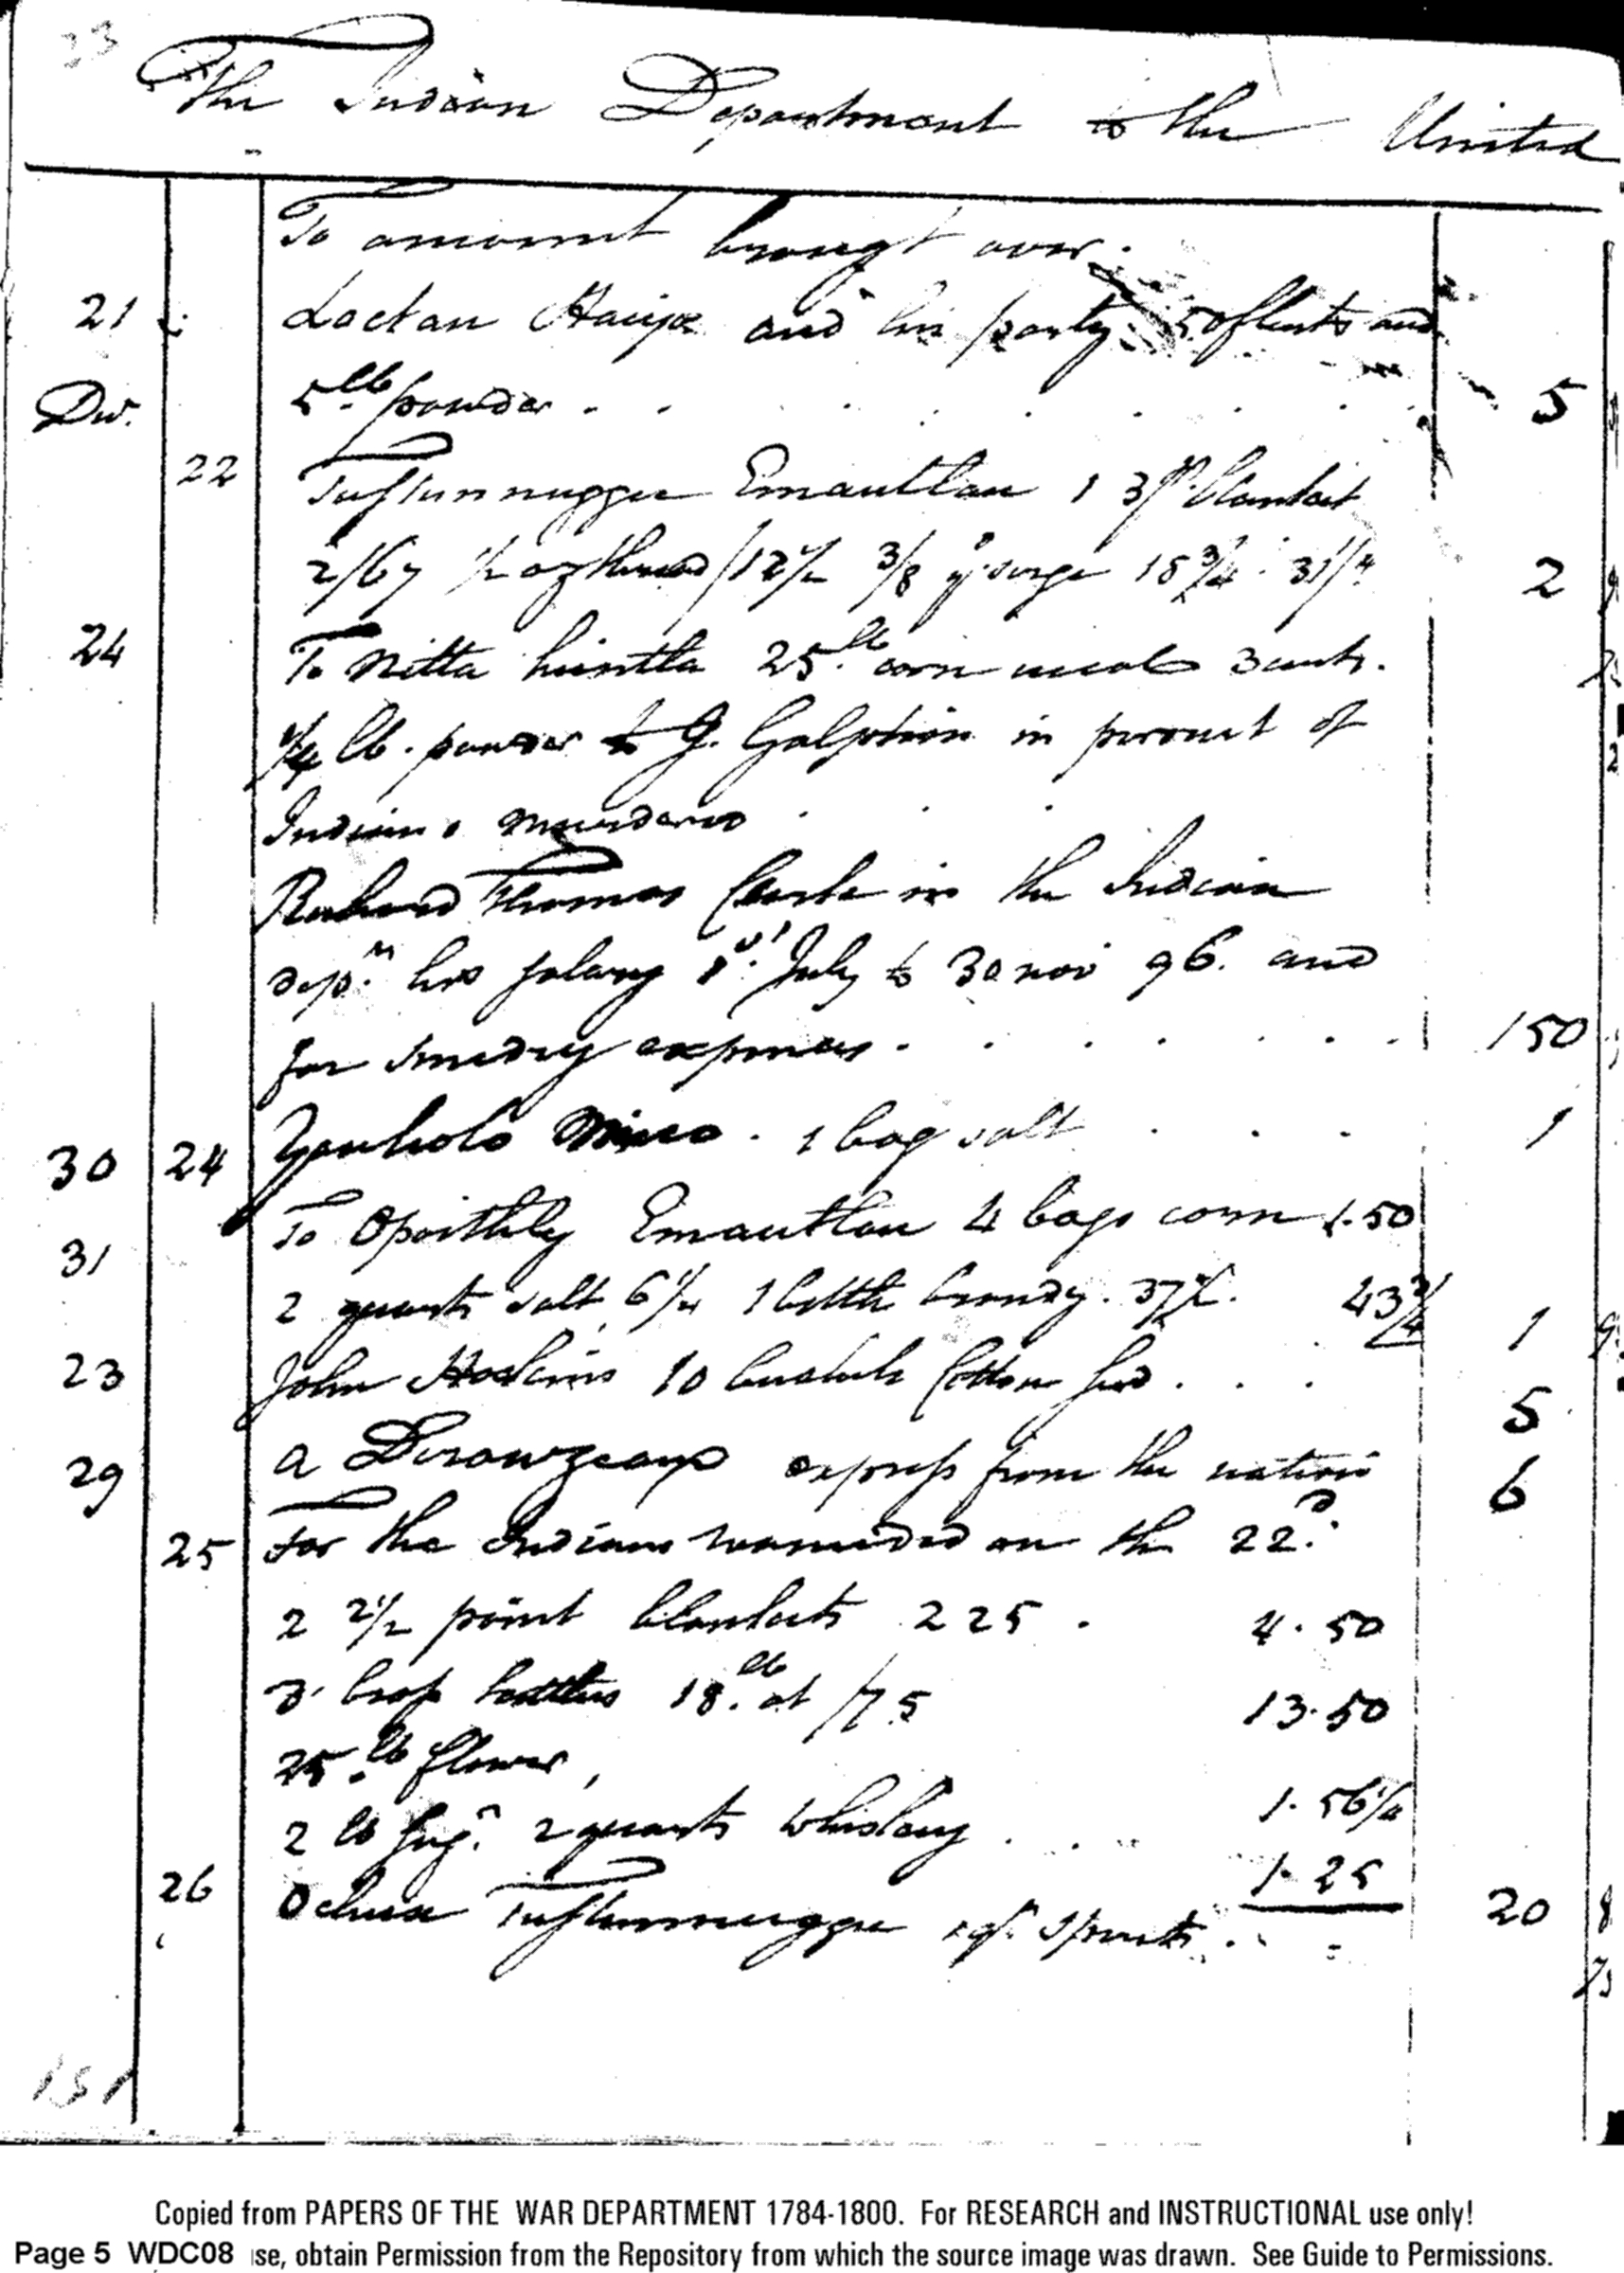 23
The Indian Department to the United
To amount brougt over.
21 Loctau Haujo and his party 50 flints and
Do. 5 lb. powder . . . . . . . . 5
22 Tustunnuggee Emautlau 1 3 pt. blanket
2/67 1/2 oz thread /12 1/2 3/8 yd. serge 18 3/4 . 31 1/4 2
24 To Nitta huntla 25 lb. corn meal 3 cuts.
1/4 lb. powder to G. Galphin in persuit of
Indian murderers . . .
Richard Thomas Clerk in the Indian
dep.m his salary 1st. July to 30 nov 96. and
for sundry expenses . . . . . . . 150
30 24 Yauholo Mico . 1 bag salt . . . 1
31 To Opoithly Emautlau 4 bags corn 1.50
2 quarts salt 6 1/4 1 bottle brandy . 37 1/2. 43 3/4 1
23 John Hoskins 10 bushels Cotton seed . . . 5
29 a Derowzeaux express from the nation 6
25 For the Indians wounded on the 22d.
2 2 1/2 point blankets 225 . 4.50
3 brass kettles 18 lb. at /75 13.50
25 lb. flower, 1.56 1/4
2 lb sugr. 2 quarts whiskey . . . 1.25
26 Ochesee Tustunnuggee 1 qt. spirits . . 20
151
Copied from PAPERS OF THE WAR DEPARTMENT 1784-1800. For RESEARCH and INSTRUCTIONAL use only!
Page 5 WDC08 se, obtain Permission from the Repository from which the source image was drawn. See Guide to Permissions.